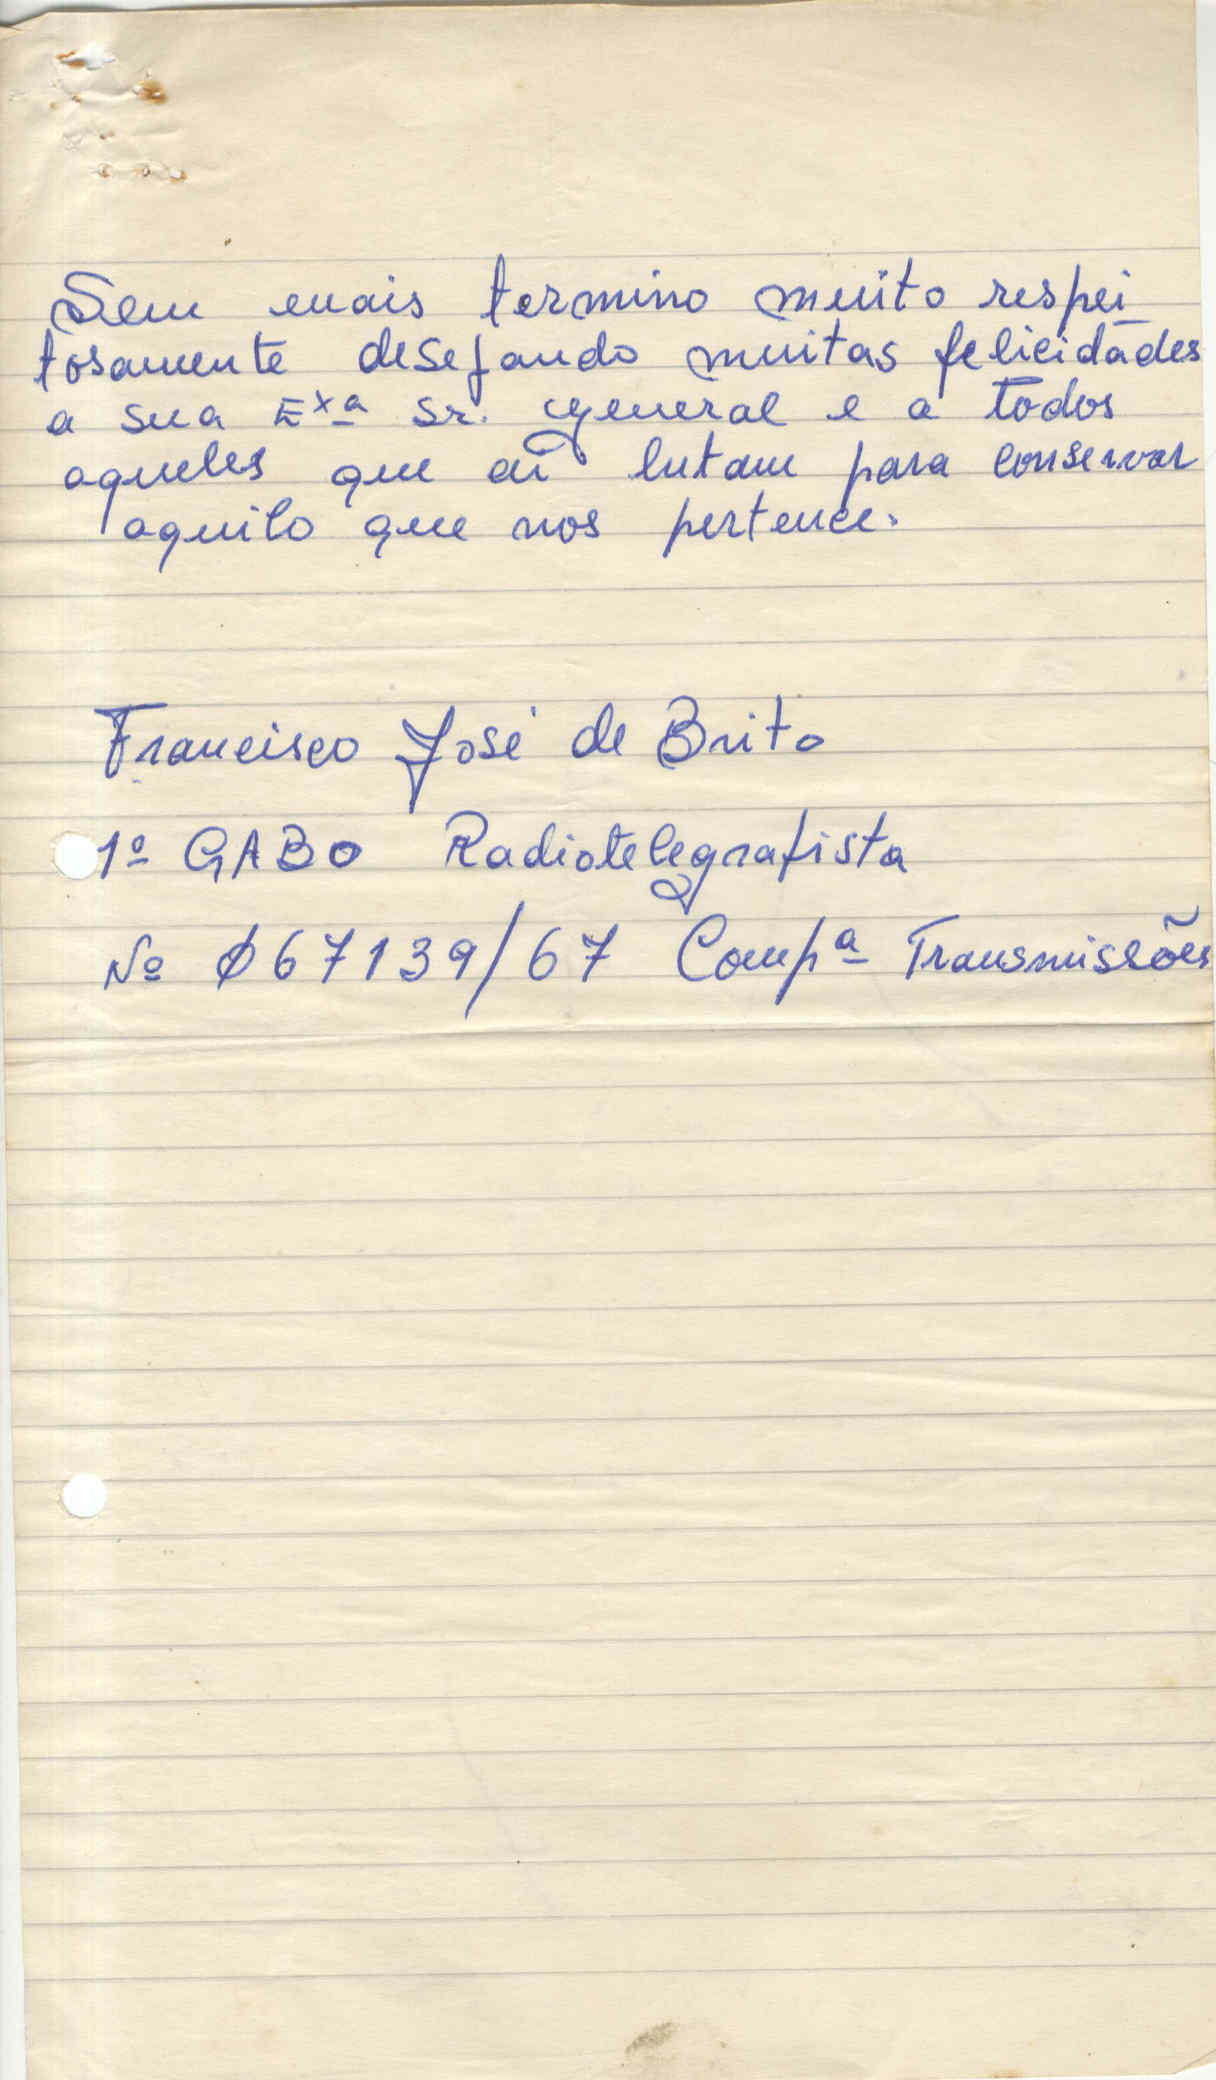 Sem mais termino muito respei_
tosamente desejando muitas felicidades
a sua Exª Sr. general e a todos
aqueles que aí lutam para conservar
aquilo que nos pertence.
Francisco José de Brito
1º CABO Radiotelegrafista
Nº 067139/67 Compª Transmissões